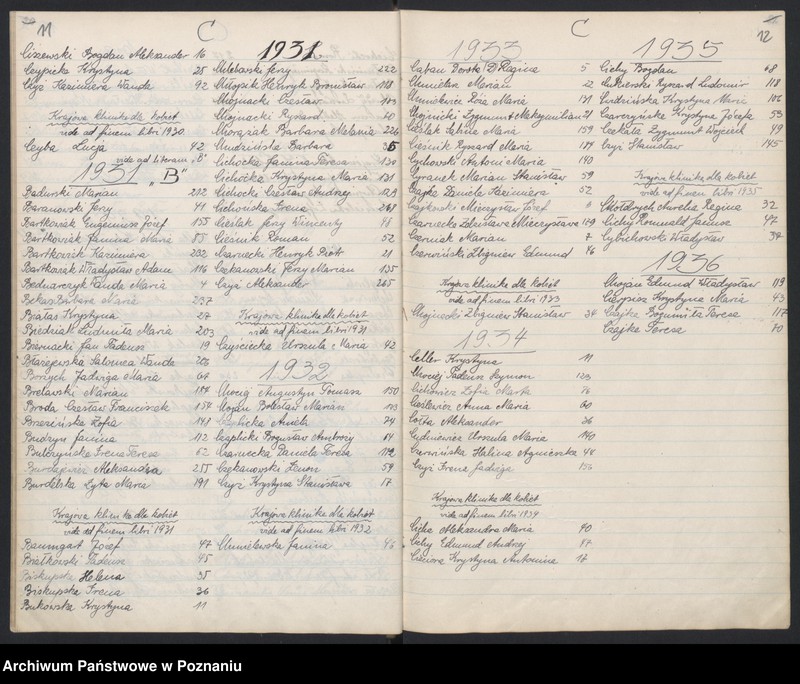 11
C
Ciszewski Bogdan Aleksander 16
Ceypicka Krystyna 25
Czyż Kazimiera Wanda 92
Krajowa klinika dla kobiet
vide ad finem libri 1930
Ceyba Lucja 42
vide ad literam „B"
1931 „B"
Badurski Marian 212
Baranowski Jerzy 41
Bartkowiak Eugeniusz Józef 155
Bartkowiak Janina Maria 85
Bartkowiak Kazimiera 232
Bartkowiak Władysław Adam 116
Bednarczyk Wanda Maria 4
Bekas Barbara Maria 237
Białas Krystyna 27
Biedziak Ludmiła Maria 203
Biernacki Jan Tadeusz 19
Błażejewska Salomea Wanda
Jadwiga Maria 64
Brelawski Marian 184
Broda Czesław Franciszek 154
Brzezińska Zofia 148
Budzyn Janina 112
Irena Teresa 62
Aleksandra 255
Burdelska Zyta Maria 191
Krajowa klinika dla kobiet
vide ad finem libri 1931
Baumgart Józef 47
Białkowski Tadeusz 45
Biskupska Helena 35
Biskupska Irena 36
Bukowska Krystyna 11
1931
Chlebowski Jerzy 222
Chłopik Henryk Bronisław 118
Chojnacki Czesław 103
Chojnacki Ryszard 20
Chorąziak Barbara Melania 224
Chudzińska Barbara 35
Cichocka Janina Teresa 130
Cichocka Krystyna Maria 131
Cichocki Czesław Andrzej 129
Cichońska Irena 268
Cieślak Jerzy Wincenty
Cieśnik Roman 52
Czarnecki Henryk Piotr 21
Czekanowski Jerzy Marian 135
Czyż Aleksander 265
Krajowa klinika dla kobiet
vide ad finem libri 1931
Urszula Maria 42
1932
Chocieg Augustyn Tomasz 150
Chojan Bolesław Marian 103
Amelia 74
Czaplicki Bogusław Ambroży 64
Czarnecka Daniela Teresa 112
Czekanowski Zenon 59
Czyż Krystyna Stanisława 17
Krajowa klinika dla kobiet
vide ad finem libri 1932
Chmielewska Janina 46
12
C
1933
Caban Dorota Regina 5
Chmielan Marian 22
Maria 131
Chojnicki Zygmunt Maksymilian 21
Cieślak Halina Maria 159
Cieśnik Ryszard Maria 184
Cychowski Antoni Maria 140
Cyranek Marian Stanisław 59
Czajka Daniela Kazimiera 52
Mieczysław Józef
Czarnecka Zdzisława Mieczysława 129
Czerniak Marian 7
Czerwiński Zbigniew Edmund 46
Krajowa klinika dla kobiet
vide ad finem libri 1933
Chojnacki Zbigniew Stanisław 34
1934
Celler Krystyna 11
Chociej Tadeusz Szymon 123
Zofia Marta 76
Cieślewicz Anna Maria 60
Aleksander 36
Cudniewicz Urszula Maria 140
Czerwińska Halina Agnieszka 48
Czyż Irena Jadwiga 155
Krajowa klinika dla kobiet
vide ad finem libri 1934
Cicha Aleksandra Maria 40
Cichy Edmund Andrzej 87
Krystyna Antonina 17
1935
Cichy Bogdan 68
Cukierski Ryszard Ludomir 118
Cudzińska Krystyna Maria 106
Czarczyńska Krystyna Józefa 53
Czekała Zygmunt Wojciech 49
Czyż Stanisław 145
Krajowa klinika dla kobiet
vide ad finem libri 1935
Aurelia Regina 32
Cichy Romuald Janusz 47
Cybichowski Władysław 34
1936
Chojan Edmund Władysław 119
Cierpisz Krystyna Maria 43
Czajka Bogumiła Teresa 117
Czajka Teresa 70
Archiwum Państwowe w Poznaniu